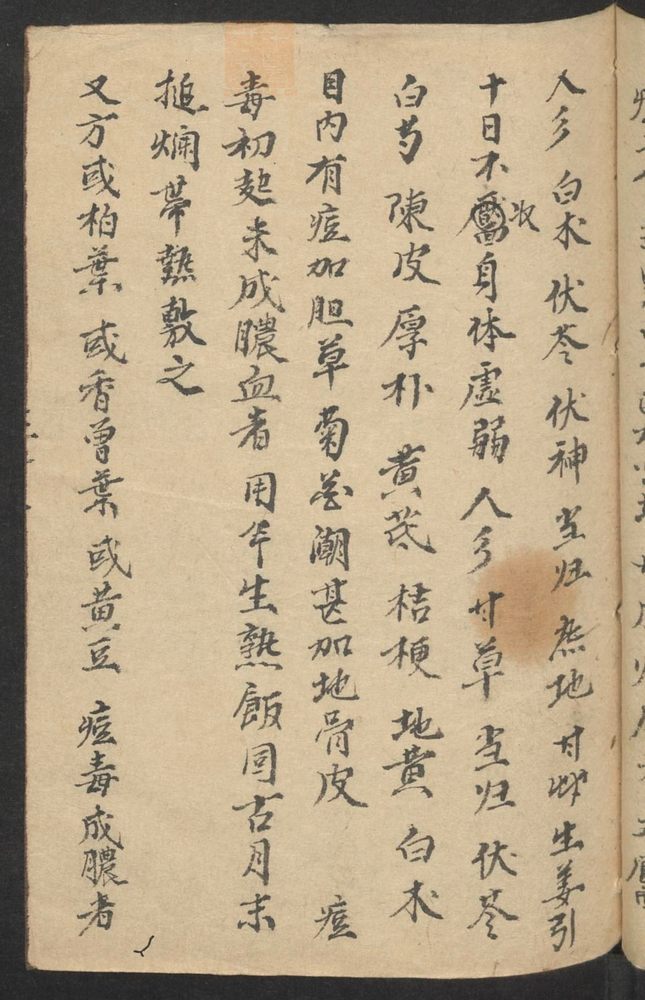 人参 白术 伏苓 伏神 当归 熟地 甘草 生姜引
十日不收靥身体虚弱 人参 甘草 当归 伏苓
白芍 陳皮 厚朴 黄芪 桔梗 地黄 白术
目内有痘加胆草 菊花 潮甚加地骨皮 痘
毒初起未成膿血者 用半生熟飯同古月末
搥爛帯熱敷之
又方或柏葉 或香曽葉 或黄豆 痘毒成膿者